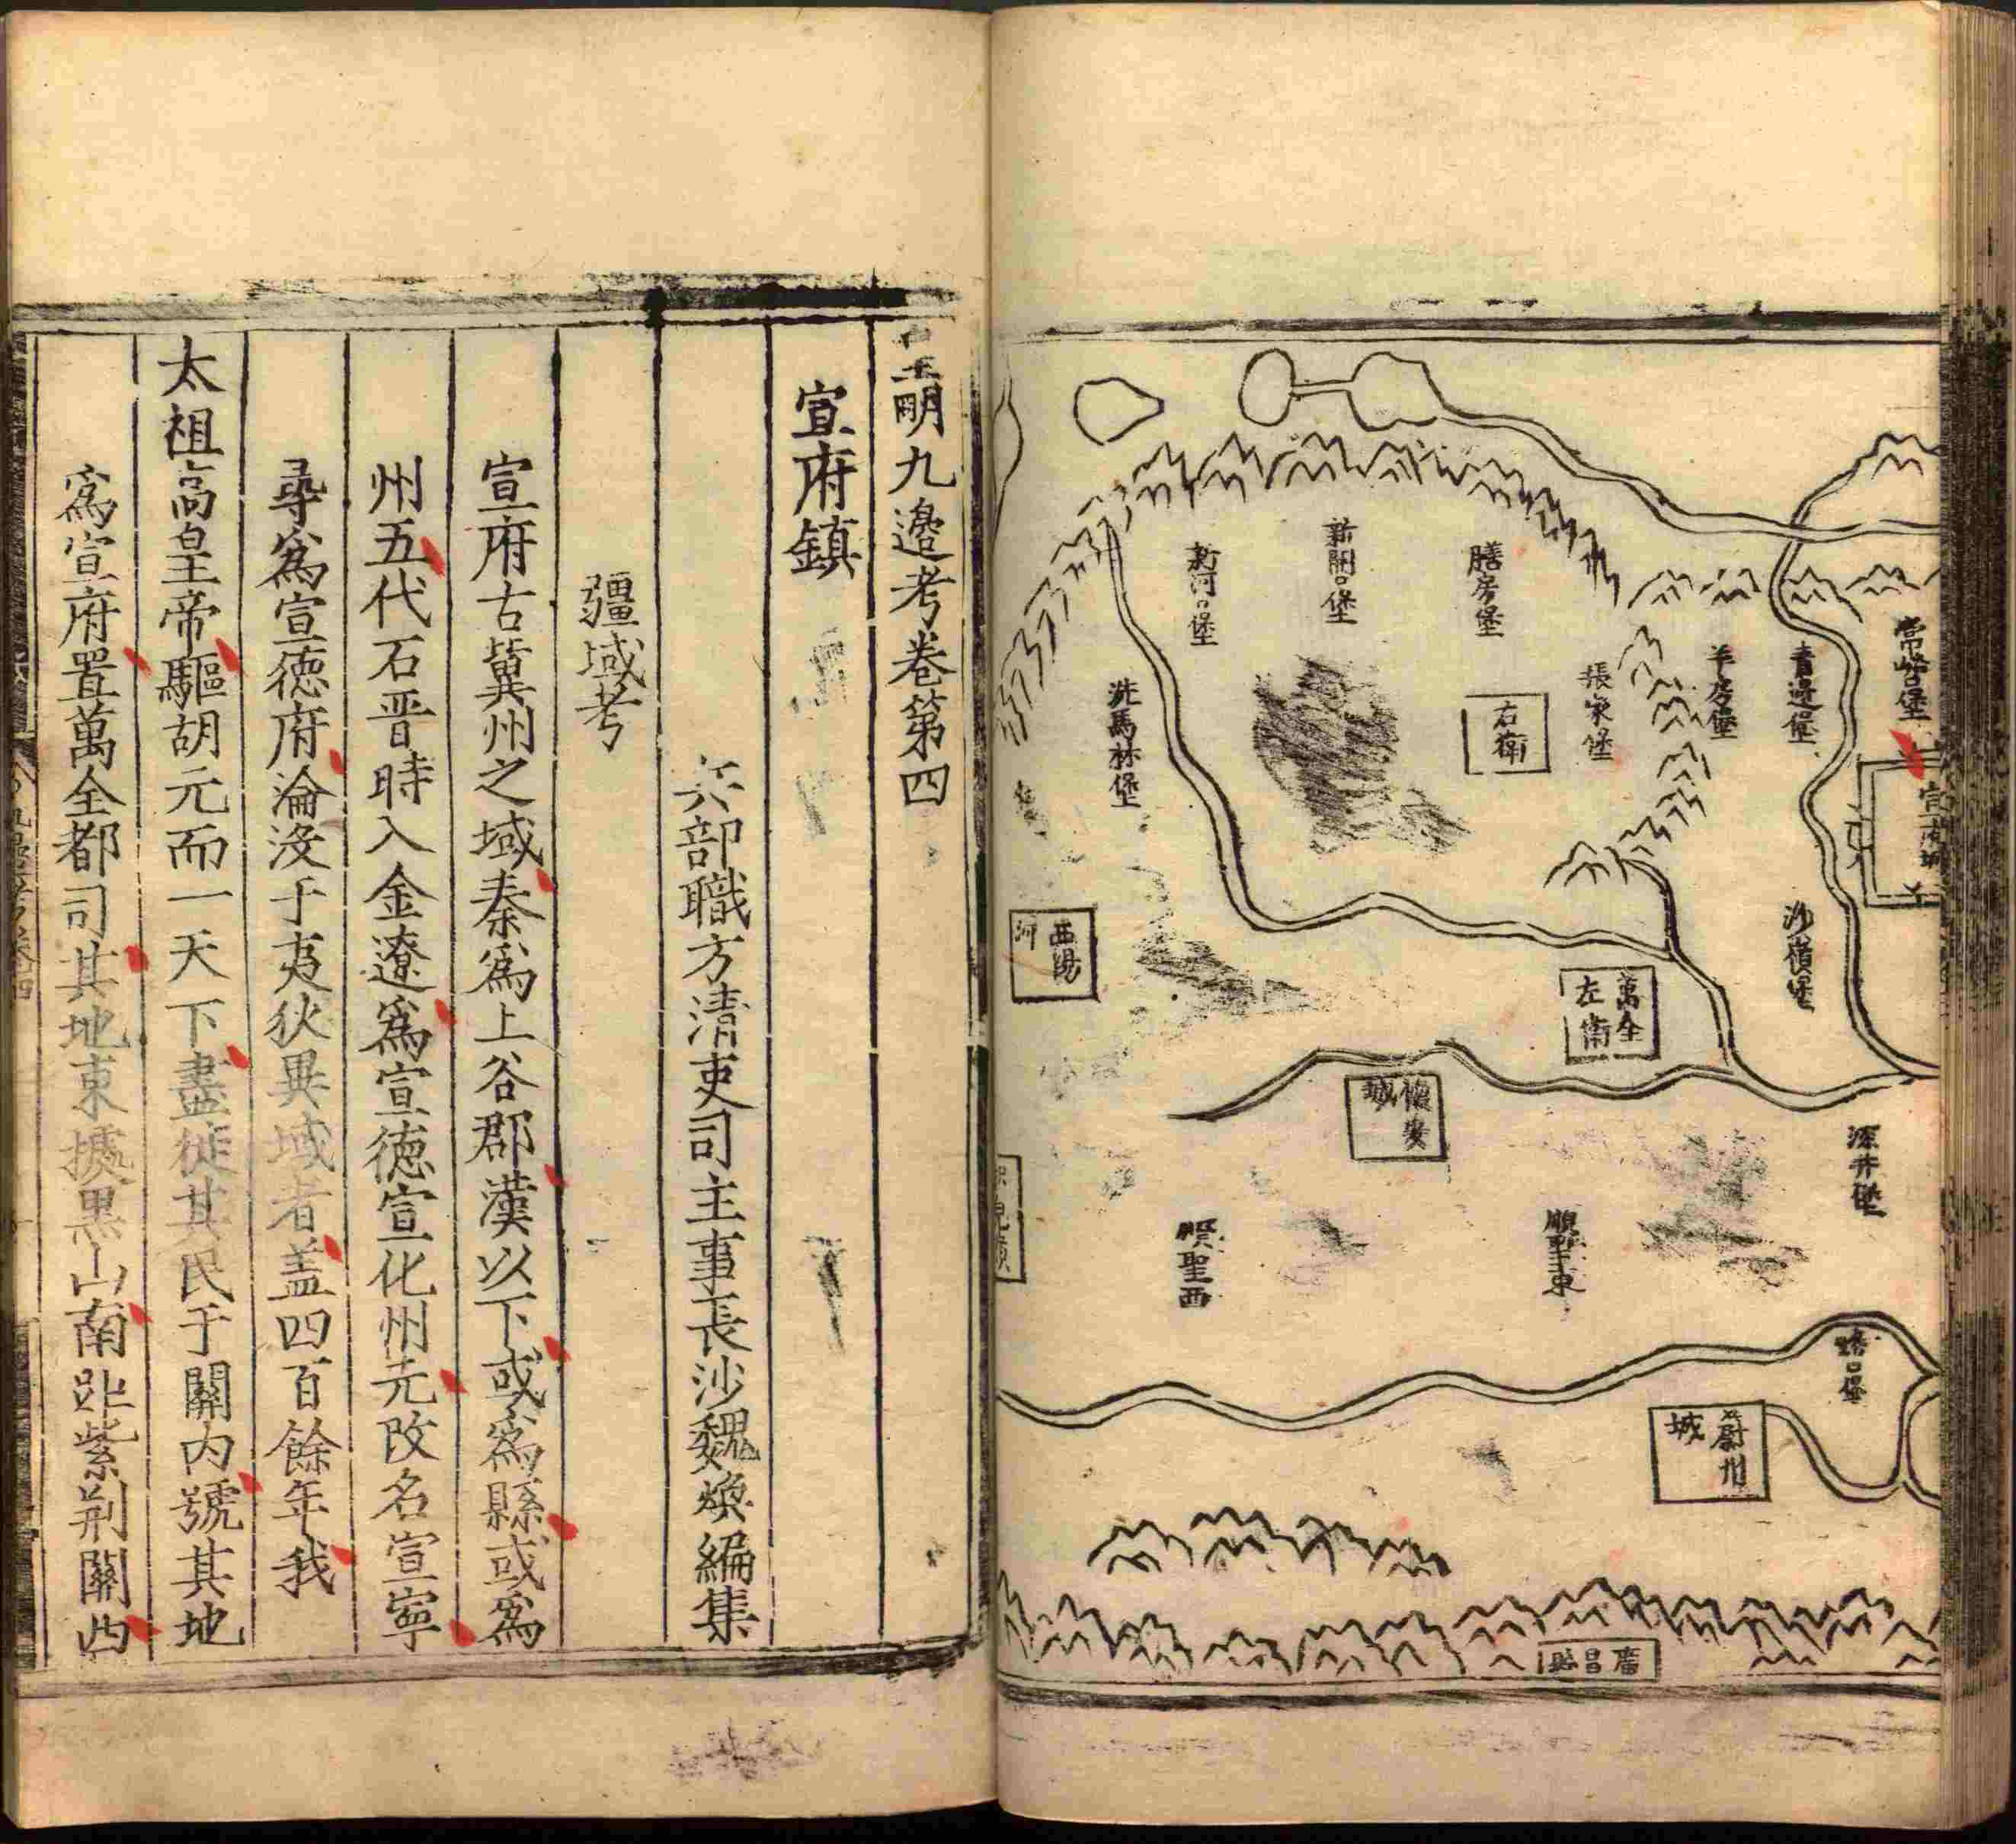 常峪堡
宣府城
青邊堡
沙嶺堡
深井堡
羊房堡
張家堡
膳房堡
右衛
新開口堡
新河口堡
洗馬林堡
萬全
左衛
懷安
城
西陽
河
順聖東
順聖西
蔚州
城
廣昌縣
皇明九邊考卷第四
宣府鎮
兵部職方清吏司主事長沙魏煥編集
疆域考
宣府古冀州之域秦爲上谷郡漢以下或爲縣或爲
州五代石晋時入金遼爲宣德宣化州元改名宣寧
尋爲宣德府淪沒于夷狄異域者盖四百餘年我
太祖高皇帝驅胡元而一天下盡徙其民于關內號其地
爲宣府置萬全都司其地東據黑山南距紫荆關西